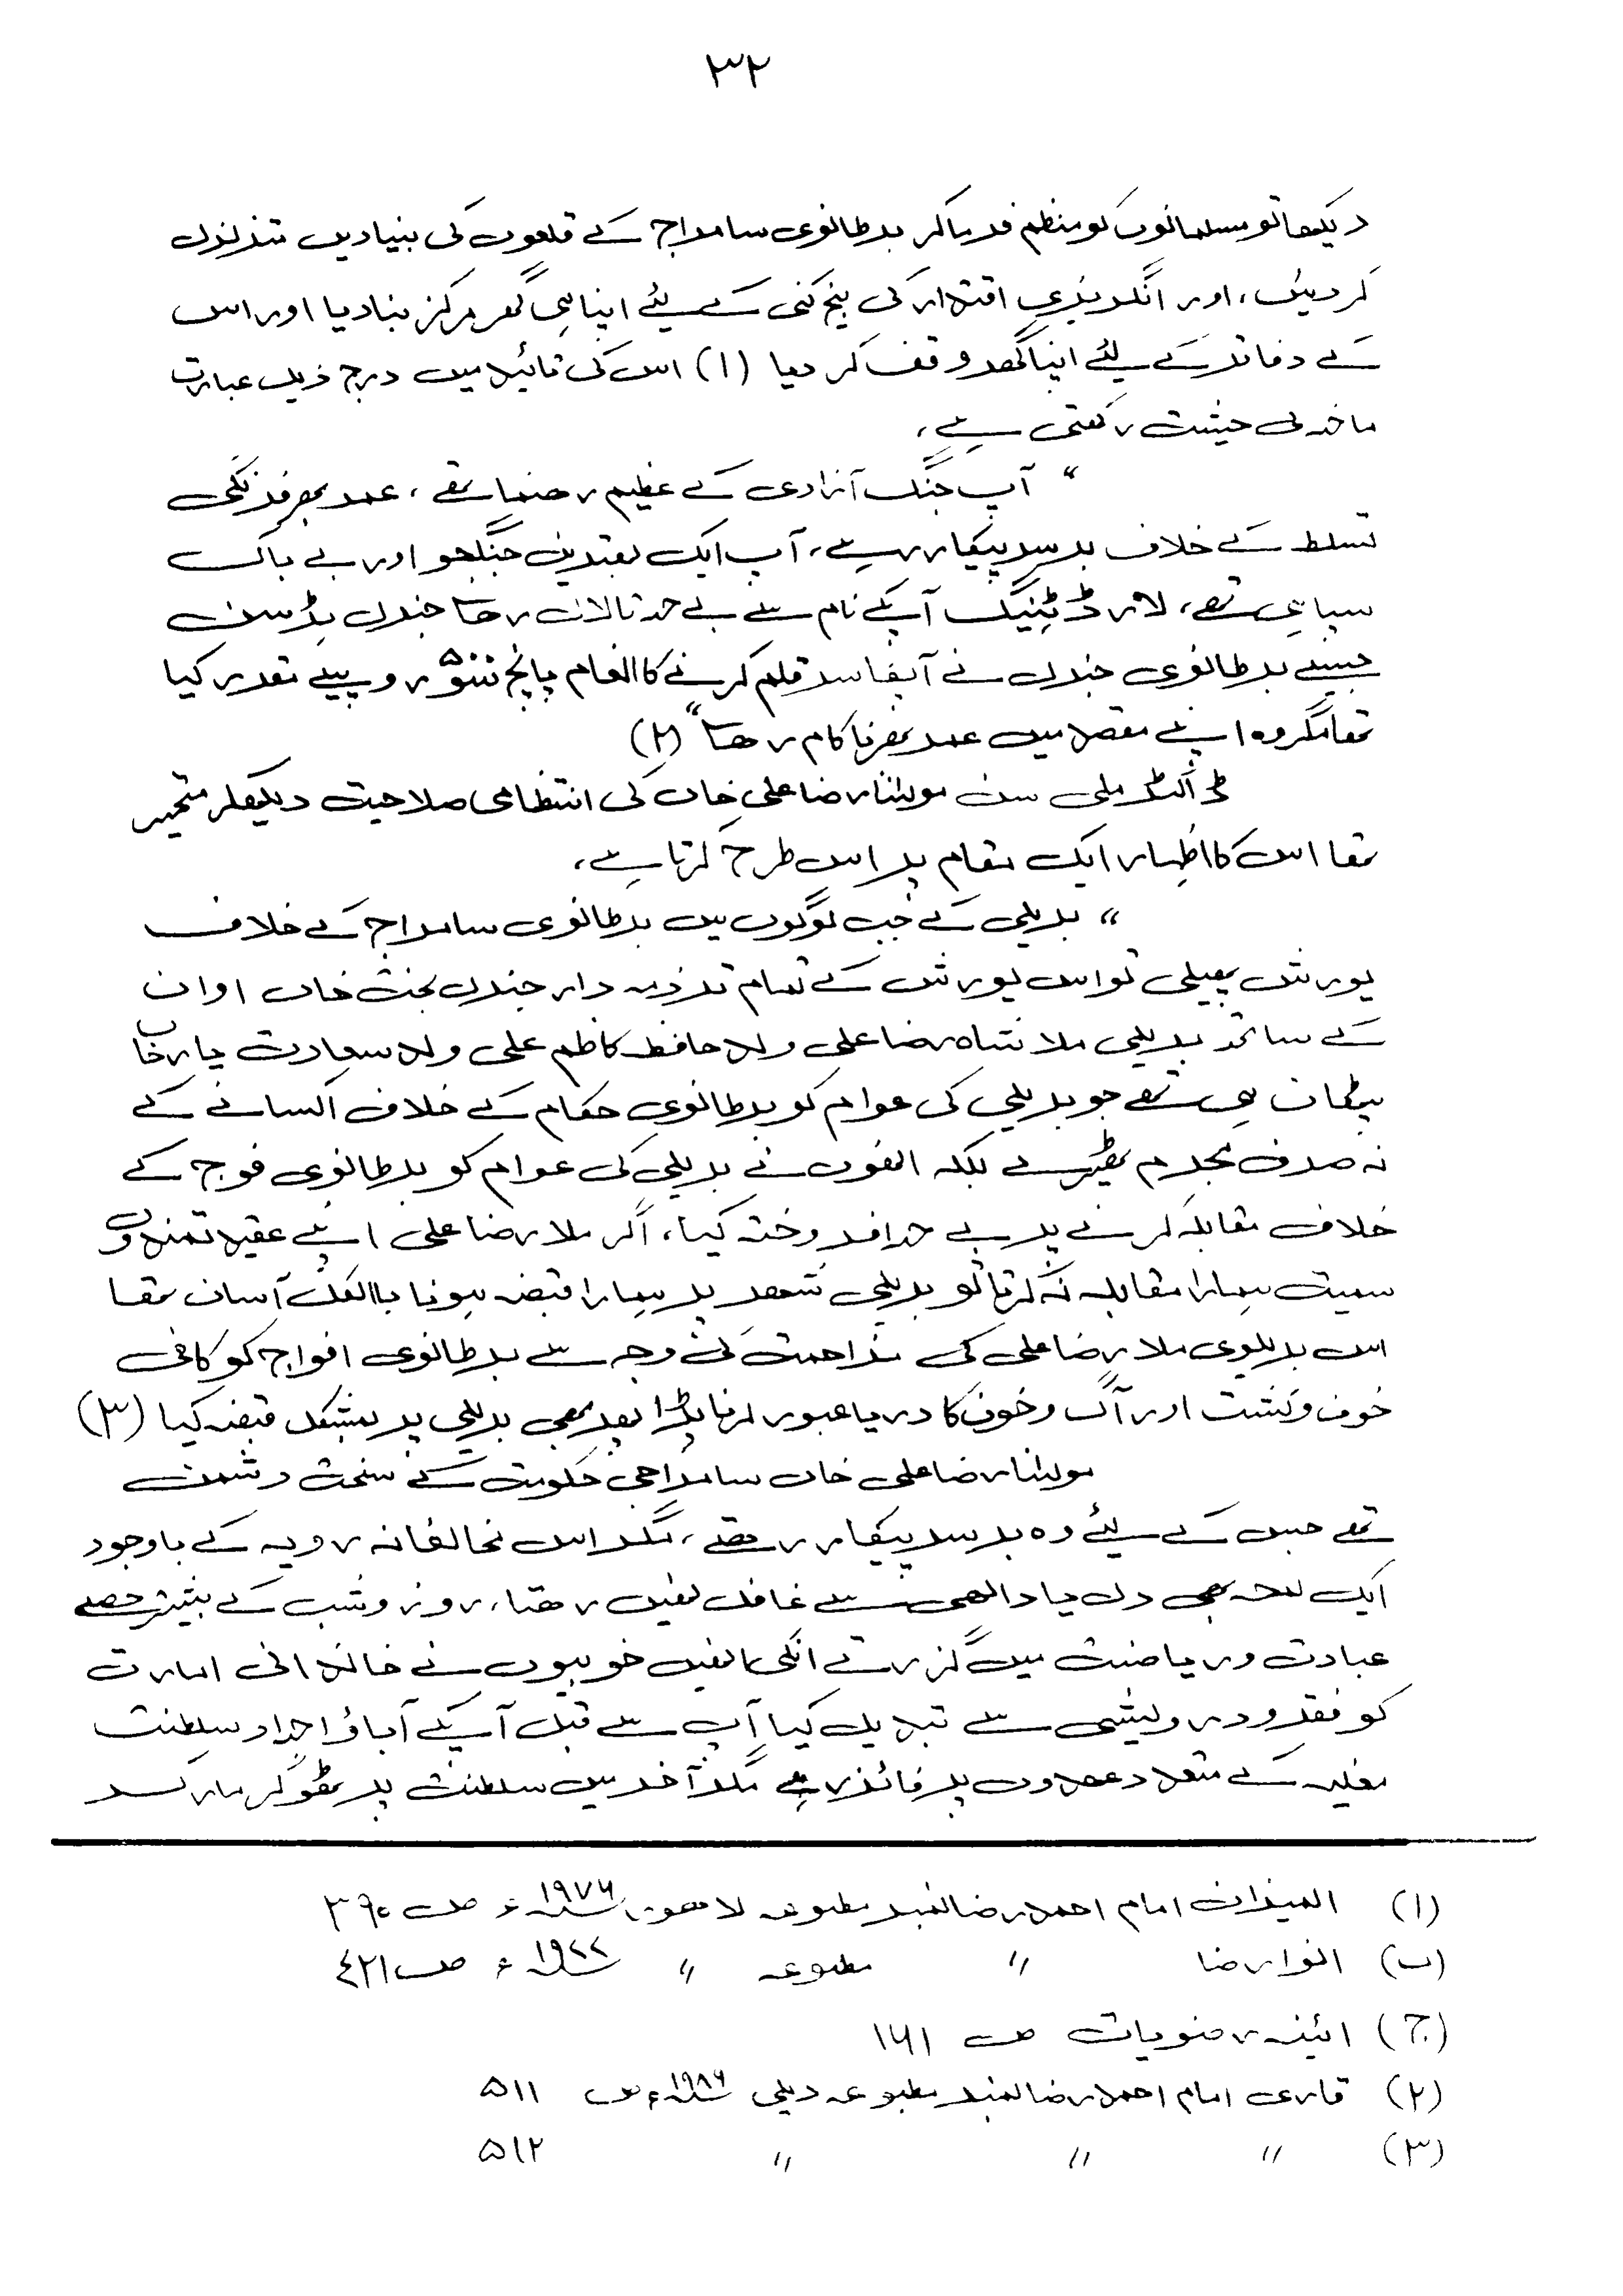 ۳۲
دیکھا تو مسلمانوں کو منظم فرما کر برطانوی سامراج کے قلعوں کی بنیادیں متزلزل
کر دیئں، اور انگریزی اقتدار کی بیخ کنی کے لیئے اپنا ہی گھر مرکز بنا دیا اور اس
کے دفاتر کے لیئے اپنا گھر وقف کر دیا (۱) اس کی تائید میں درج ذیل عبارت
ماخذ کی حیثیت رکھتی ہے،
" آپ جنگ آزادی کے عظیم رھنما تھے، عمر بھر فرنگی
تسلط کے خلاف برسرپیکار رہے، آپ ایک بہترین جنگجو اور بے باک
سپاہی تھے، لارڈ ہٹینگ آپکے نام سے بے حد نالاں رھا جنرل ہڈسن
جیسے برطانوی جنرل نے آپکا سر قلم کرنے کا انعام پانچ سو ۵۰۰ روپیے مقرر کیا
تھا مگر وہ اپنے مقصد میں عمر بھر ناکام رھا" (۲)
ڈاکٹر ملی سن مولانا رضا علی خاں کی انتظامی صلاحیت دیکھکر متحیر
تھا اس کا اظہار ایک مقام پر اس طرح کرتا ہے،
" بریلی کے جب لوگوں میں برطانوی سامراج کے خلاف
یورش پھیلی تو اس یورش کے تمام تر ذمہ دار جنرل بخت خاں اوان
کے ساتھ بریلی ملا شاہ رضا علی ولد حافظ کاظم علی ولد سعادت یار خاں
پٹھان ہی تھے جو بریلی کی عوام کو برطانوی حکام کے خلاف اکسانے کے
نہ صرف مجرم ٹھیرے بلکہ انھوں نے بریلی کی عوام کو برطانوی فوج کے
خلاف مقابلہ کرنے پر بے حد افروختہ کیا، اگر ملا رضا علی اپنے عقیدتمندوں
سمیت ہمارا مقابلہ نہ کرتا تو بریلی شھر پر ہمارا قبضہ ہونا بالکل آسان تھا
اس بریلوی ملا رضا علی کی مزاحمت کی وجہ سے برطانوی افواج کو کافی
خوف و کشت اور آگ و خون کا دریا عبور کرنا پڑا پھر بھی بریلی پر بمشکل قبضہ کیا (۳)
مولانا رضا علی خاں سامراجی حکومت کے سخت دشمن
تھے جس کے لیئے وہ برسرپیکار رھے، مگر اس مخالفانہ رویہ کے باوجود
ایک لمحہ بھی دل یاد الھی سے غافل نھیں رھتا، روز و شب کے بیشتر حصے
عبادت و ریاضت میں گزرتے انکی انھیں خوبیوں نے خاندانی امارت
کو فقر و درویشی سے تبدیل کیا آپ سے قبل آپکے آباؤ اجداد سلطنت
مغلیہ کے متعدد عھدوں پر فائز رہے مگر آخر میں سلطنت پر ٹھوکر مار کر
(۱) المیزان امام احمد رضا نمبر مطبوعہ لاھور ۱۹۷۶ سنہ ء ص ۳۹۰
(ب) انوار رضا " مطبوعہ " سنہ ء ص ۴۲۱
(ج) ائینہ رضویات ص ۱۶۱
(۲) قاری امام احمد رضا نمبر مطبوعہ دہلی ۱۹۸۶ سنہ ء ص ۵۱۱
(۳) " " " ۵۱۲